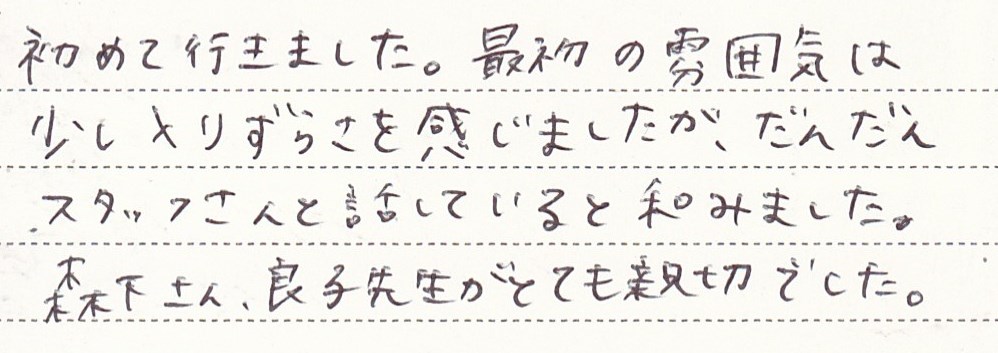 初めて行きました。最初の雰囲気は
少し入りずらさを感じましたが、だんだん
スタッフさんと話していると和みました。
森下さん、良子先生がとても親切でした。